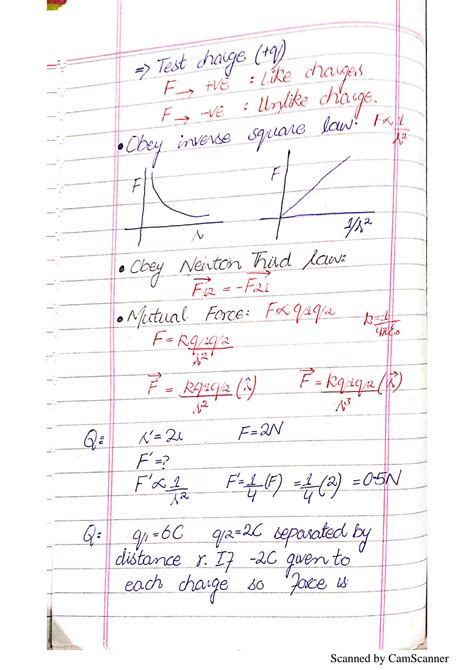 ⇒ Test charge (+q)
F → +ve : Like charges
F → -ve : Unlike charge.
• Obey inverse square law: F∝1/r²
F F
r 1/r²
• Obey Newton Third law:
F⃗12 = -F⃗21
• Mutual Force: F∝q1q2 k=1/4πε₀
F = kq1q2/r²
F⃗ = kq1q2/r² (r̂) F⃗ = kq1q2/r³ (r⃗)
Q: r'=2r F=2N
F'=?
F'∝1/r² F'=1/4(F) =1/4(2) =0.5N
Q: q1=6C q2=2C separated by
distance r. If -2C given to
each charge so force is
Scanned by CamScanner